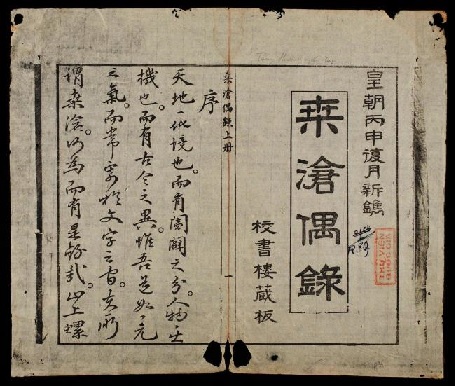 皇朝丙申復月新鐫
桒滄偶錄
校書樓蔵板
桒滄偶錄上册
一
序
天地一境也。而有闔闢之分。人物
機也。而有古今之異。惟吾元
之氣。而常寄於文字之間。夫所
謂桒滄何為而有是編哉。山上螺